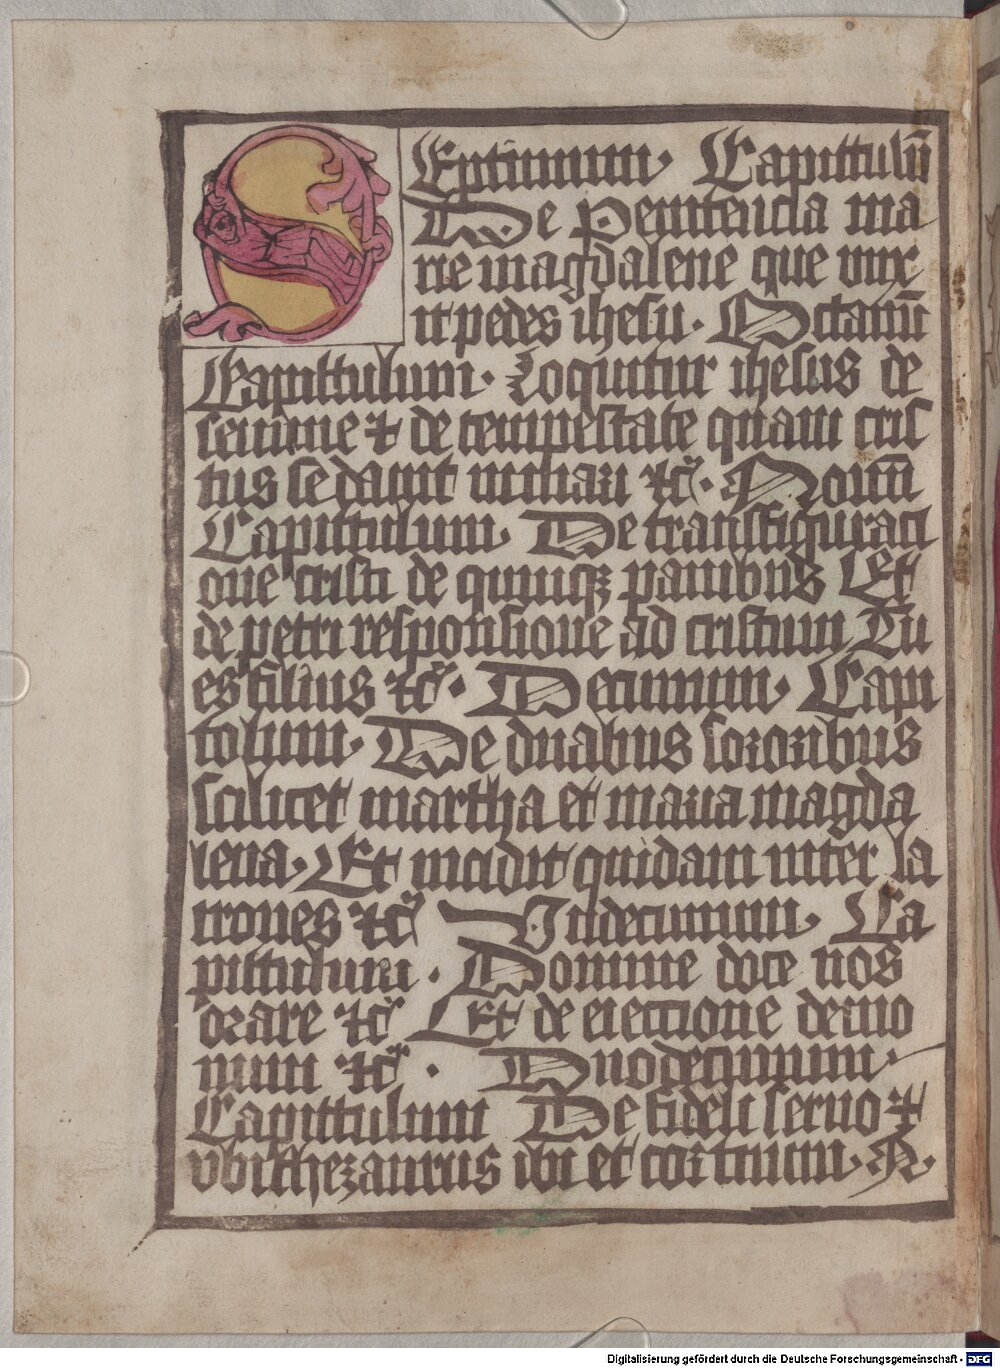 SEptimum· Capittulū
De penitencia ma
rie magdalene que vnx
it pedes ihesu· Octauū
Capittulum· Loquitur ihesus de
semine & de tempestate quam cris
tus sedauit in mari ⁊c̃· Nonū
Capittulum· De transfiguraci
one cristi de quinqꝫ panibus Et
de petri responsione ad cristum Tu
es filius ⁊c̃· Decimum· Capi
tolum· De duabus sororibus
scilicet martha et maria magda
lena· Et incidit quidam inter la
trones ⁊c̃ Vndecimum· Ca
pittulum· Domine doce nos
orare ⁊c̃ Et de eiectione demo
num ⁊c̃· Duodecimum·
Capittulum De fideli seruo ⁊
vbi thezaurus ibi et cor tuum· A·
Digitalisierung gefördert durch die Deutsche Forschungsgemeinschaft - DFG